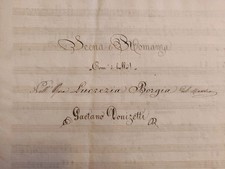 Scena e Romanza
Com'è bello!
Nell'Opera Lucrezia Borgia del Maestro
Gaetano Donizetti